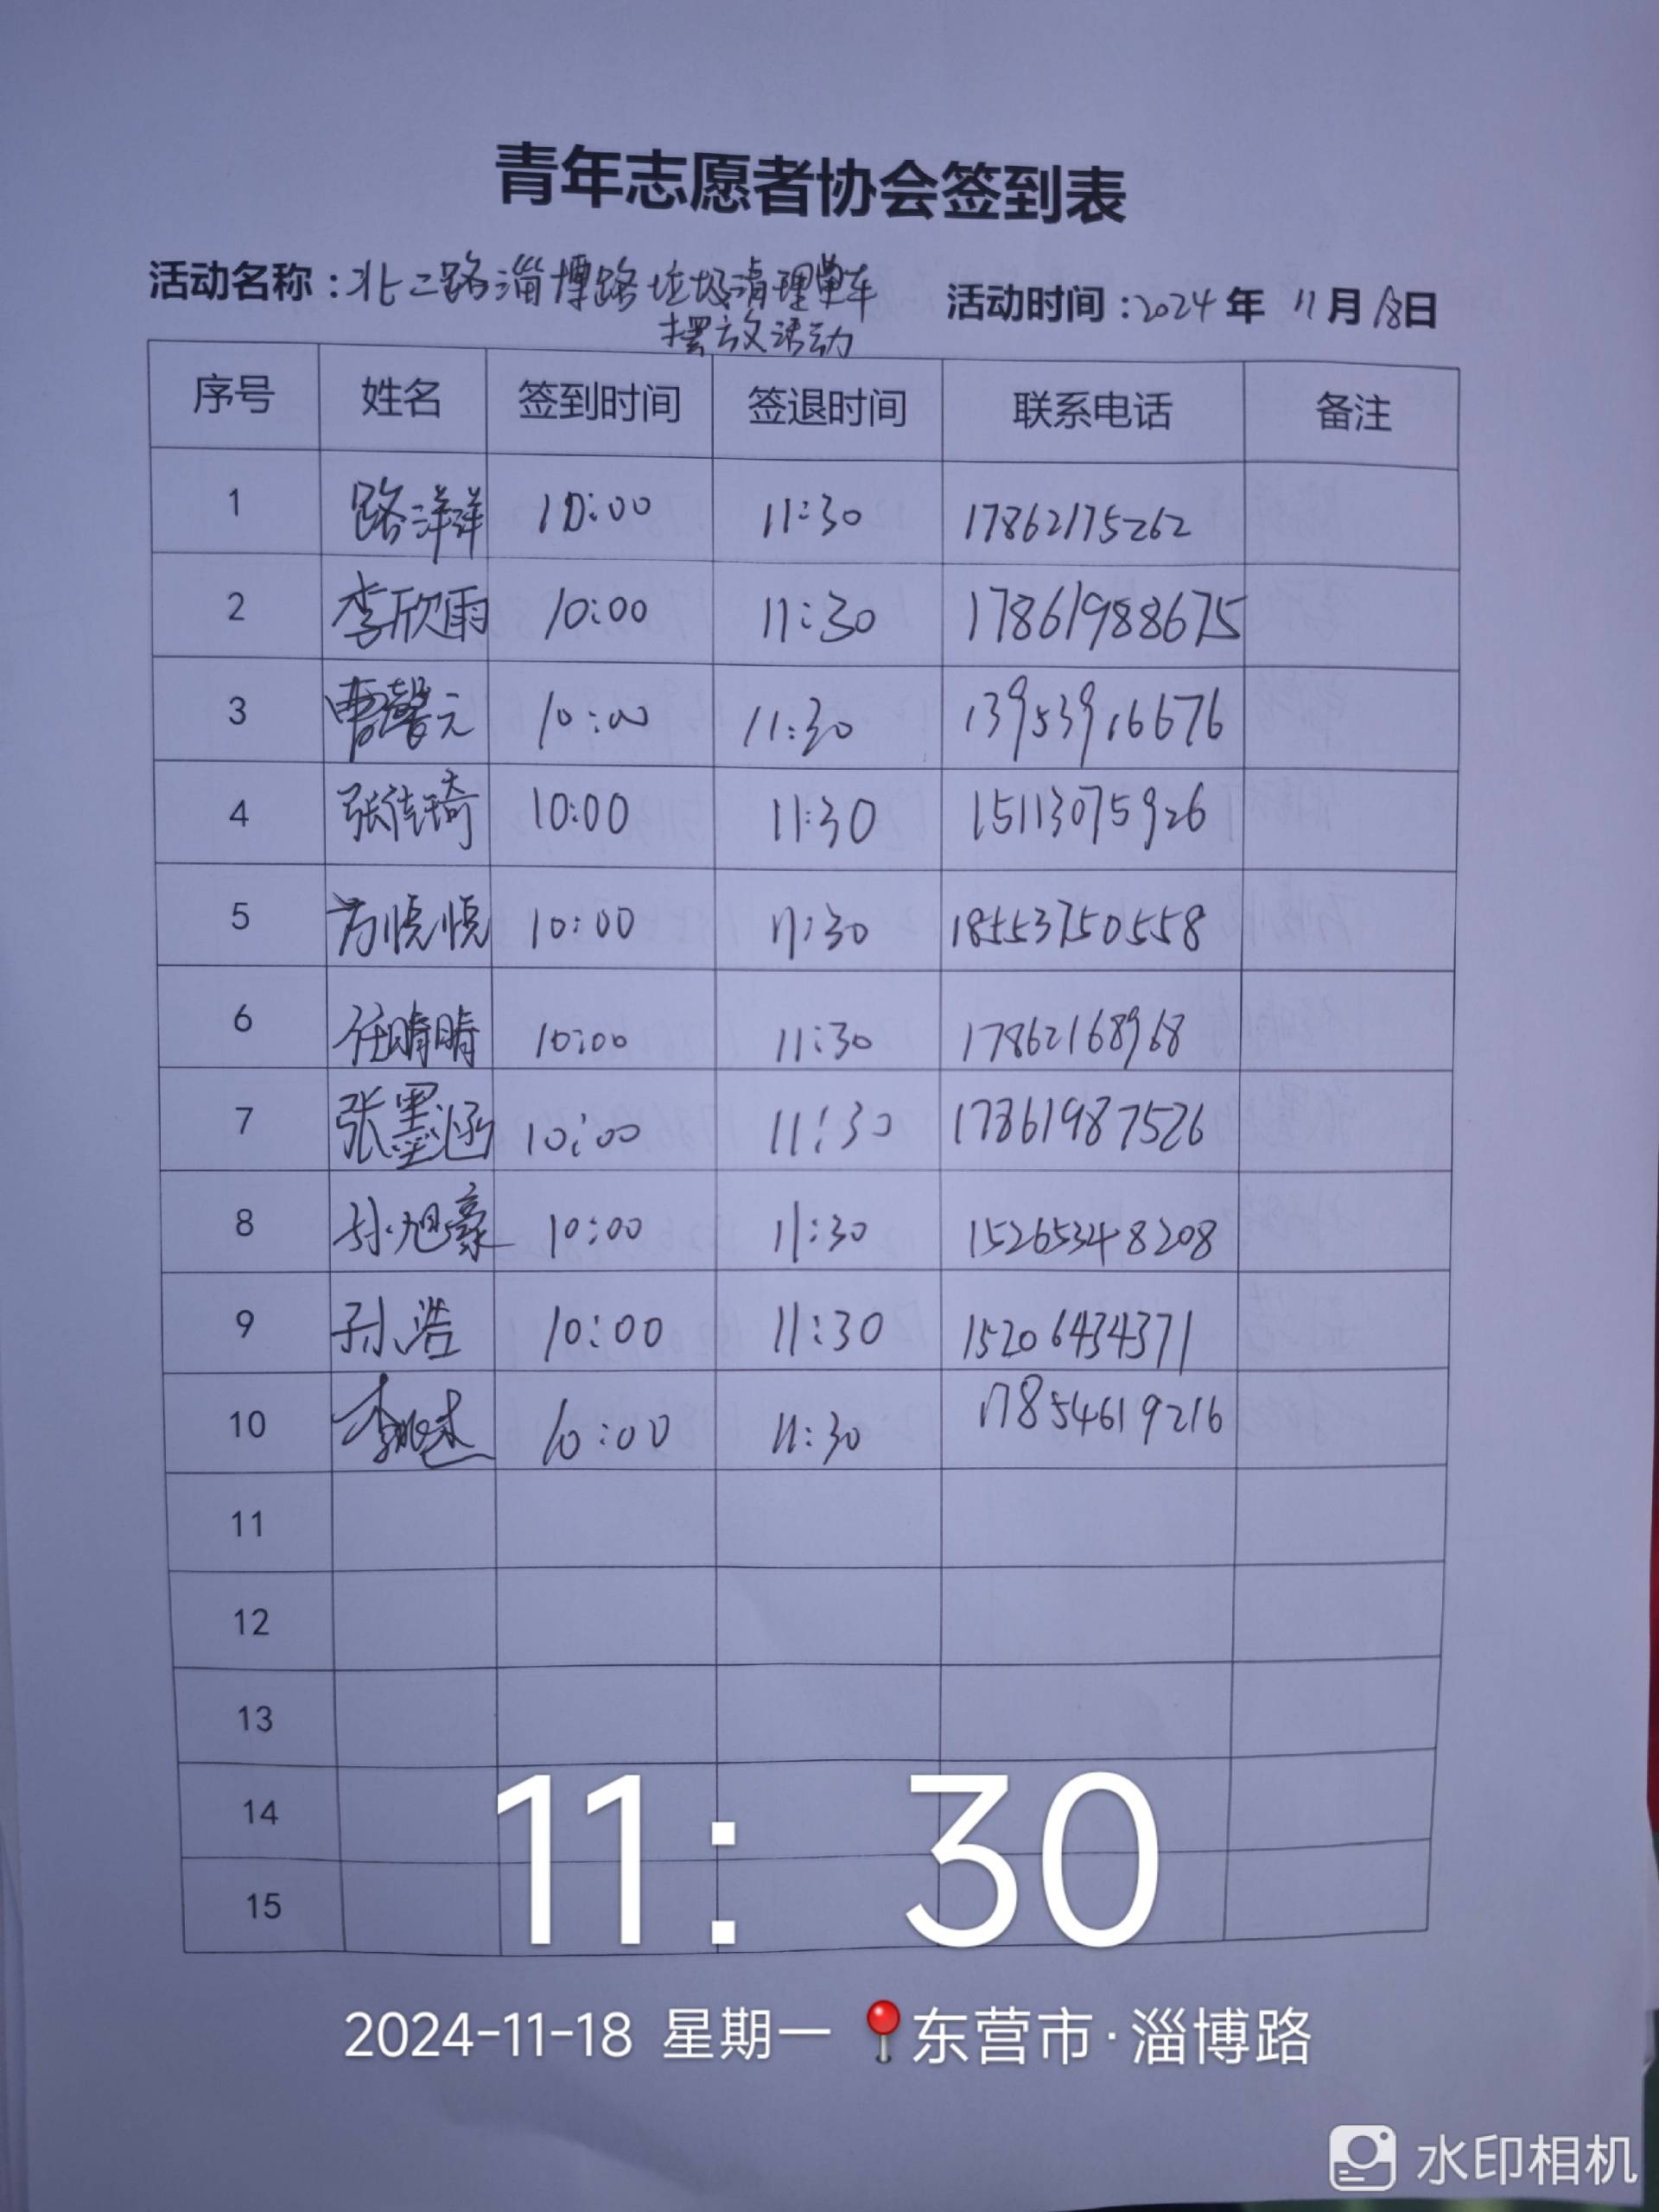 青年志愿者协会签到表
活动名称:北二路淄博路垃圾清理单车 活动时间:2024年 11月18日
摆放活动
序号 姓名 签到时间 签退时间 联系电话 备注
1 路洋洋 10:00 11:30 17862175262
2 李欣雨 10:00 11:30 17861988675
3 曹馨元 10:00 11:30 13953916676
4 张佳琦 10:00 11:30 15113075926
5 10:00 11:30 18553750558
6 任晴晴 10:00 11:30 17862168968
7 张墨涵 10:00 11:30 17861987526
8 孙旭豪 10:00 11:30 15265348208
9 孙浩 10:00 11:30 15206434371
10 10:00 11:30 17854619216
11
12
13
14
15
11: 30
2024-11-18 星期一 东营市·淄博路
水印相机